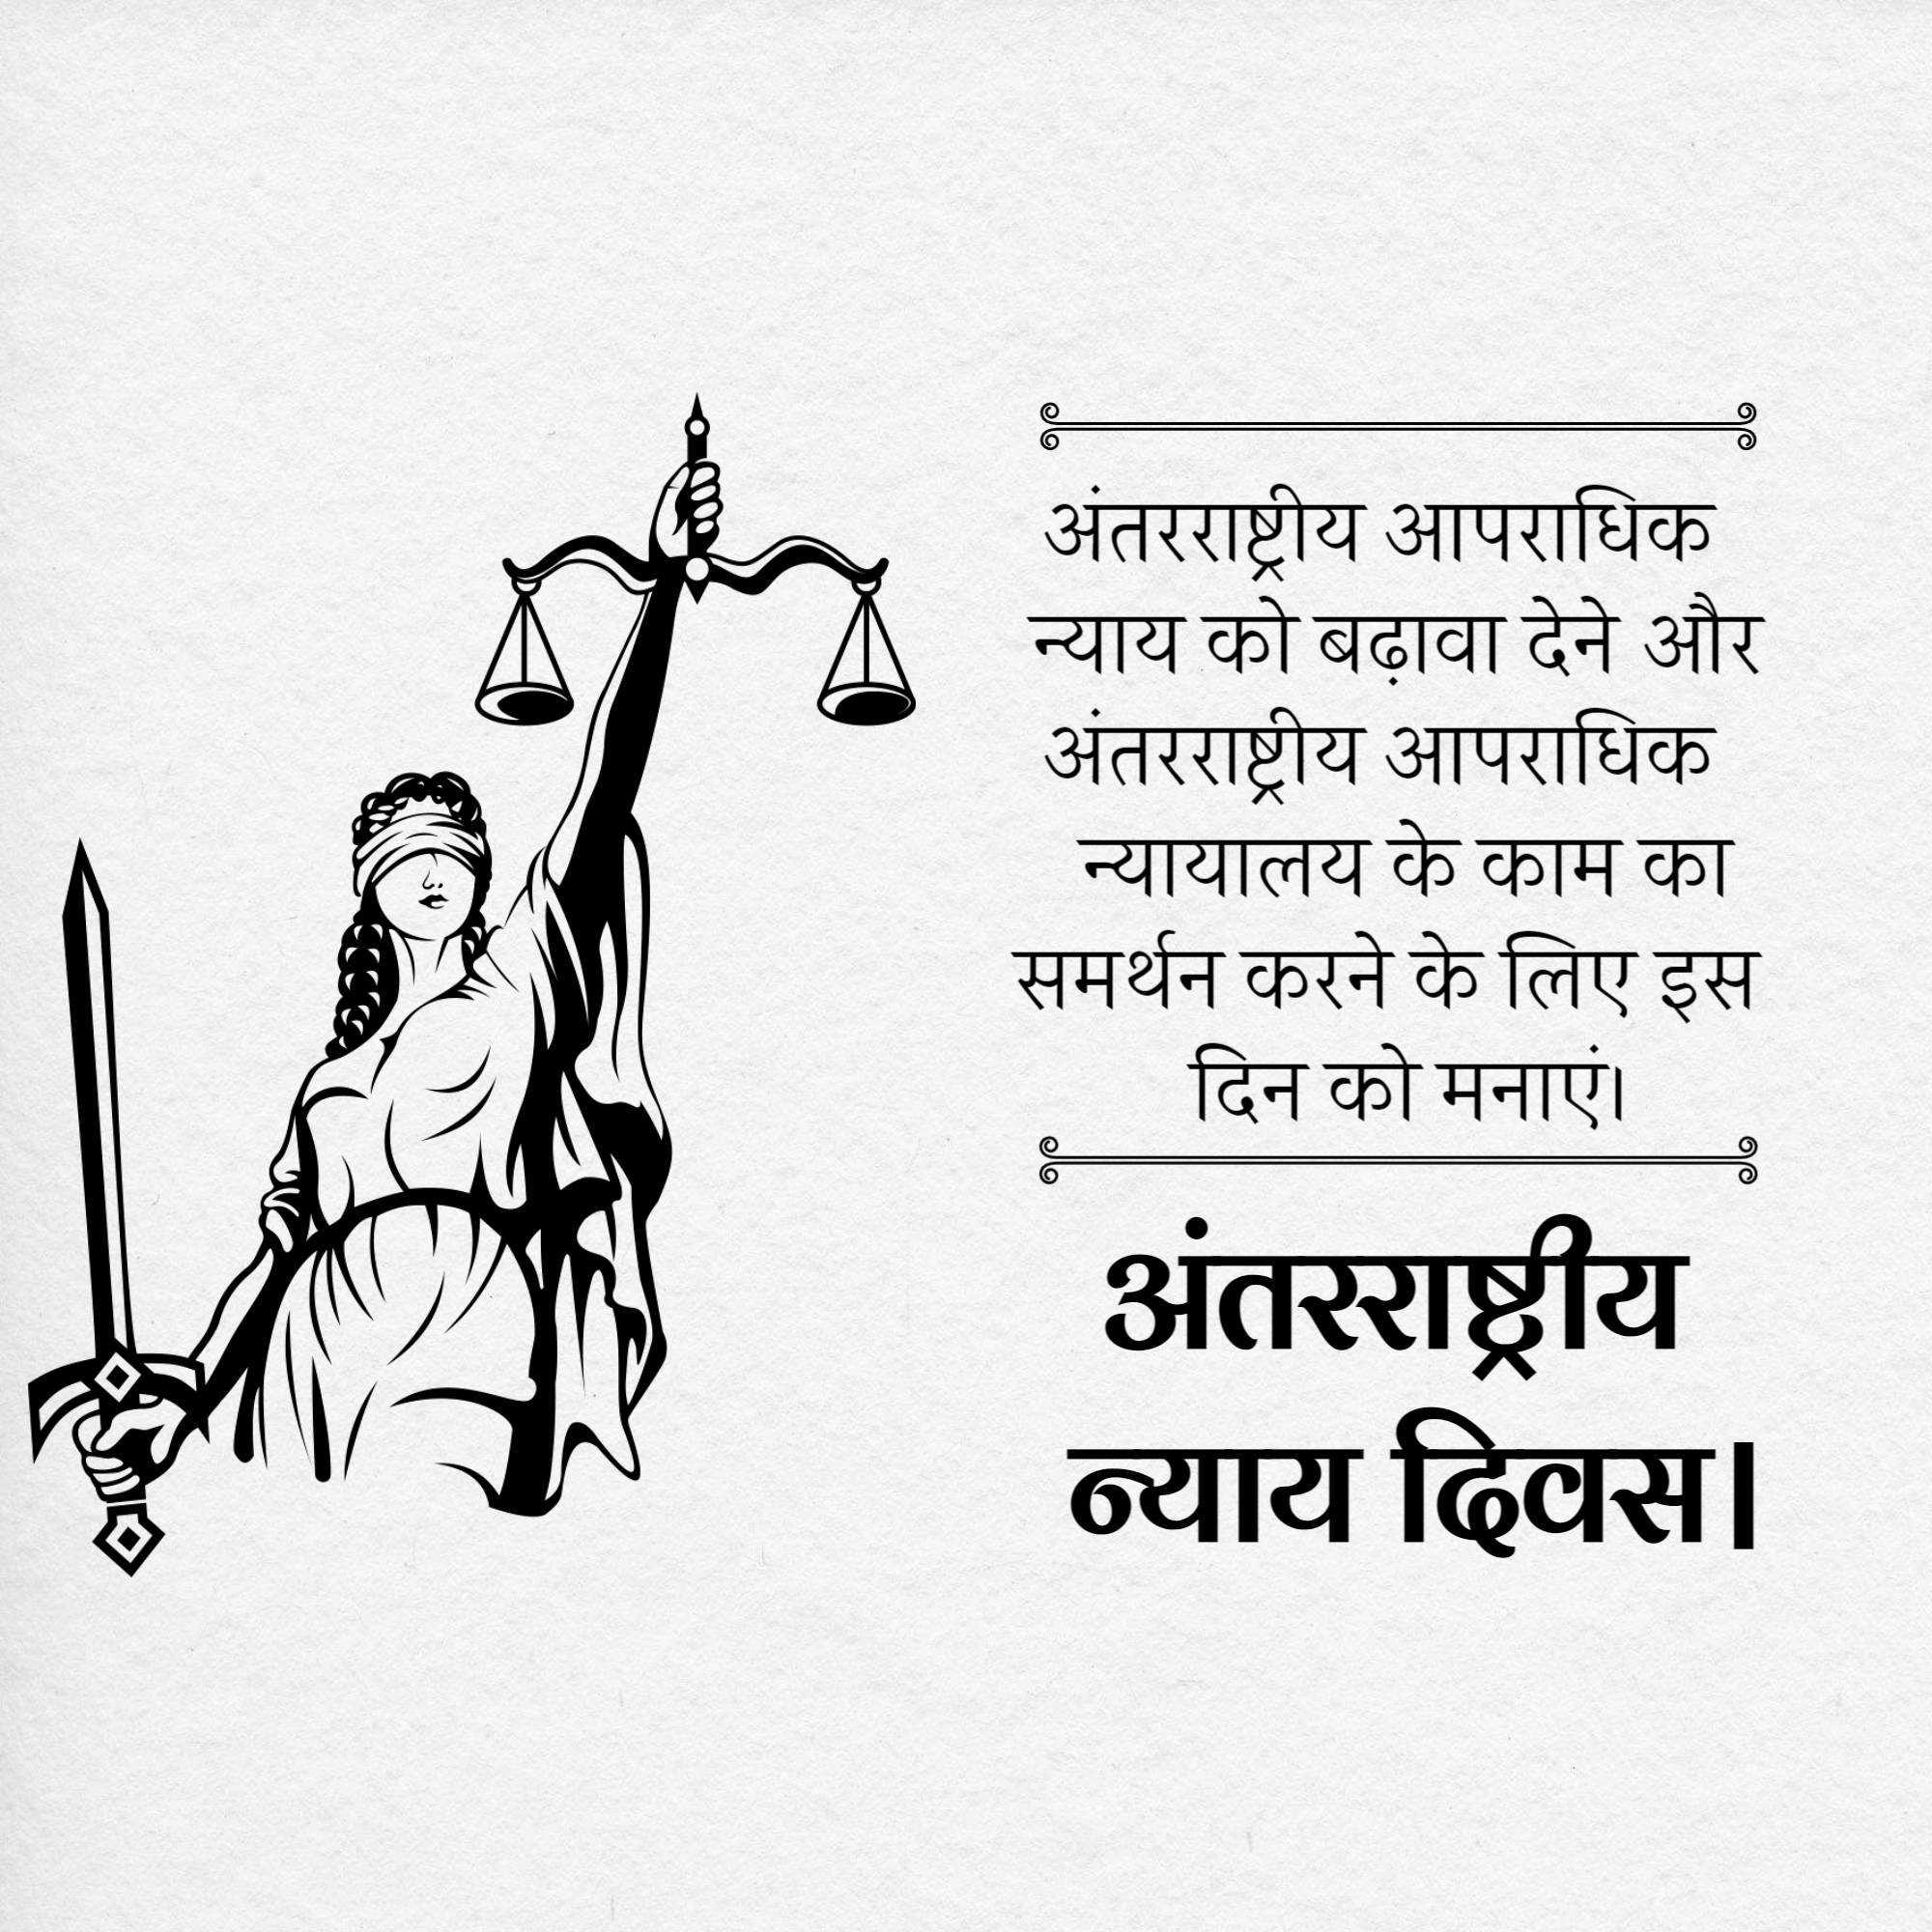 अंतरराष्ट्रीय आपराधिक
न्याय को बढ़ावा देने और
अंतरराष्ट्रीय आपराधिक
न्यायालय के काम का
समर्थन करने के लिए इस
दिन को मनाएं।
अंतरराष्ट्रीय
न्याय दिवस।